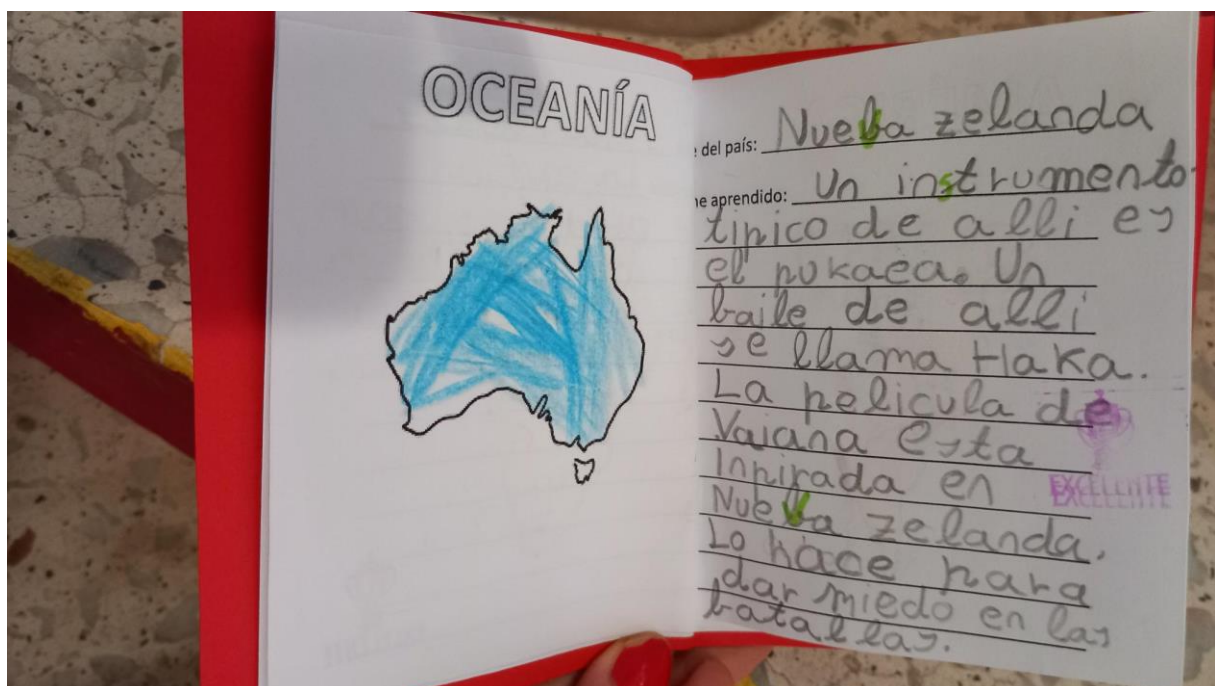 OCEANÍA
del país: Nueva zelanda
he aprendido: Un instrumento
tipico de alli es
el pukaea. Un
baile de alli
se llama Haka.
La pelicula de
Vaiana esta
Inpirada en
EXCELENTE
Nueva zelanda.
Lo hace para
dar miedo en las
batallas.